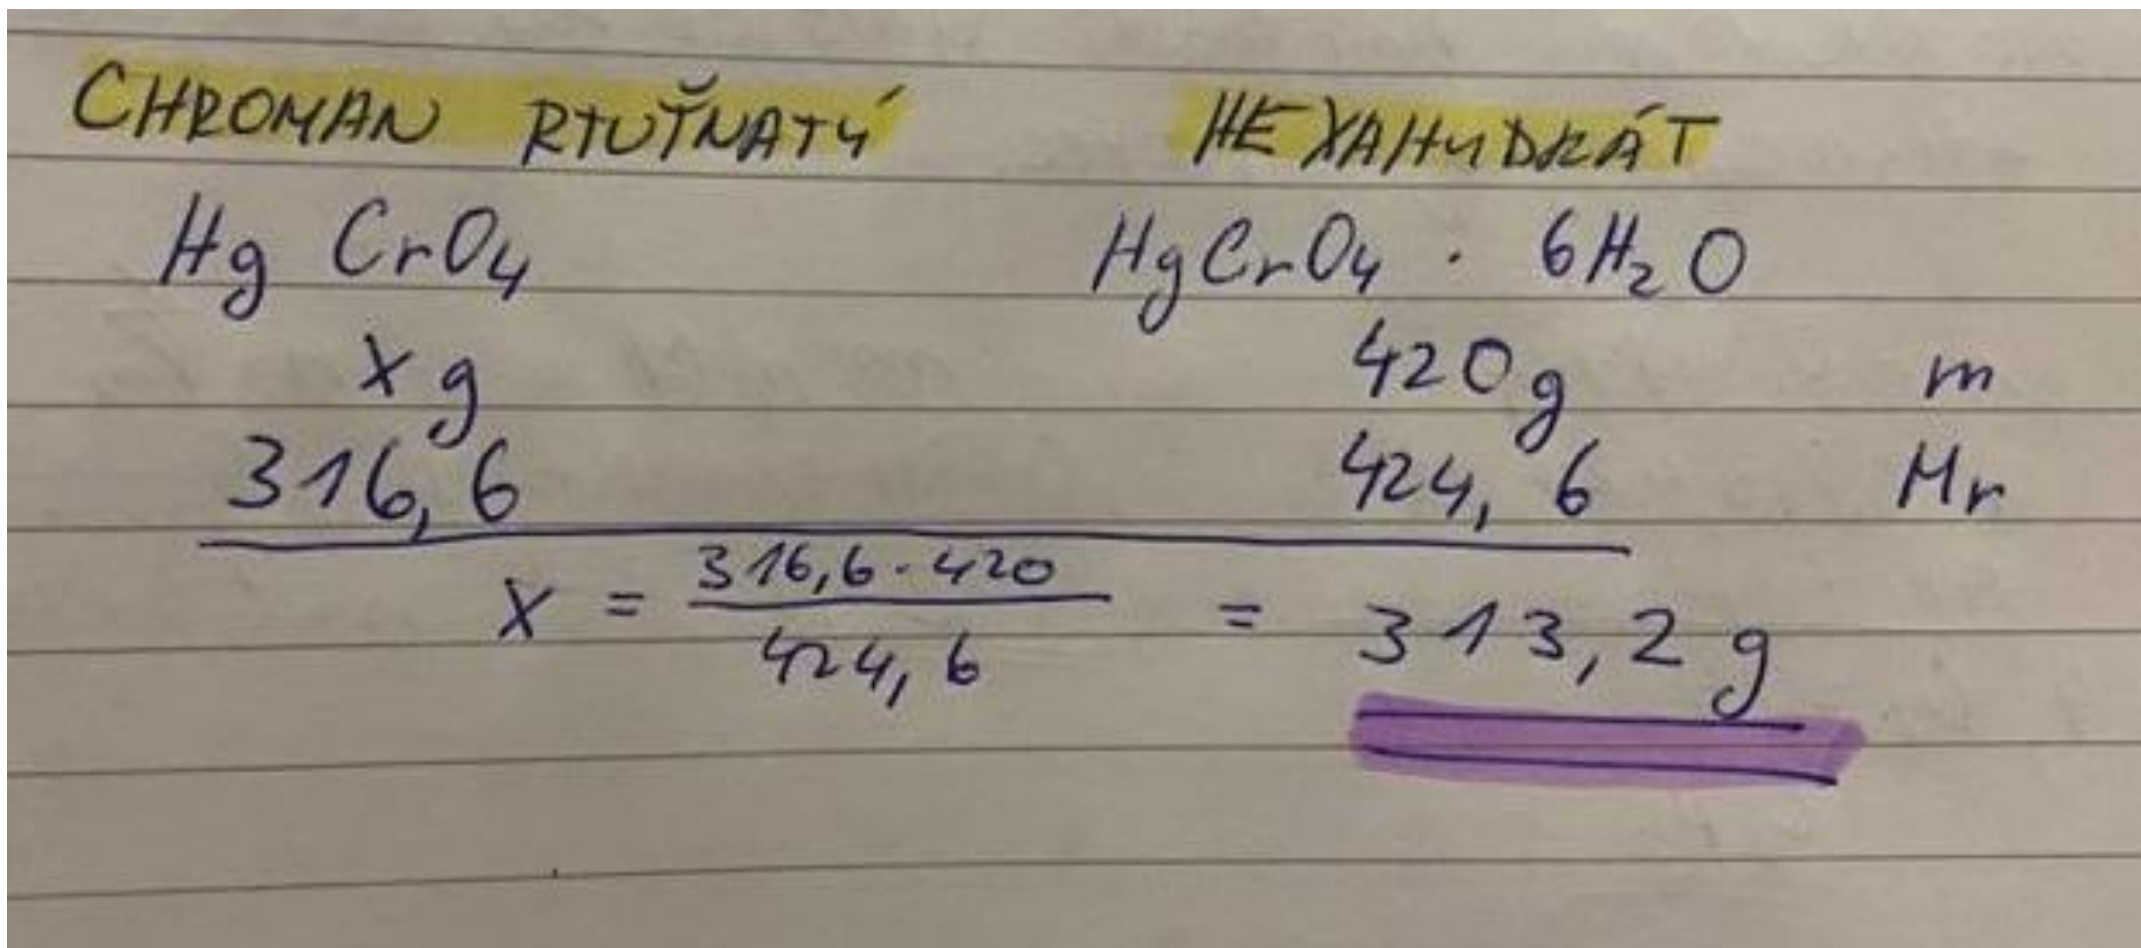 CHROMAN RTUŤNATÝ HEXAHYDRÁT
Hg CrO₄ HgCrO₄ · 6H₂O
x g 420g m
316,6 424,6 Mr
x = 316,6 · 420 / 424,6 = 313,2 g